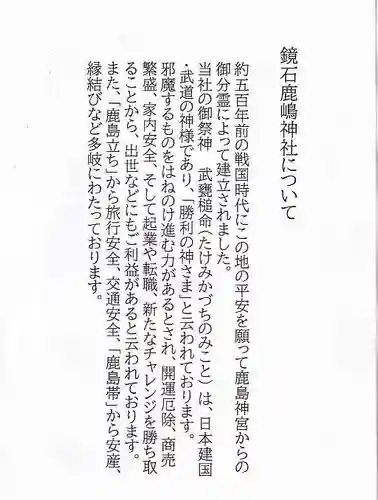 鏡石鹿嶋神社について
約五百年前の戦国時代にこの地の平安を願って鹿島神宮からの
御分霊によって建立されました。
当社の御祭神　武甕槌命(たけみかづちのみこと)は、日本建国
・武道の神様であり、「勝利の神さま」と云われております。
邪魔するものをはねのけ進む力があるとされ、開運厄除、商売
繁盛、家内安全、そして起業や転職、新たなチャレンジを勝ち取
ることから、出世などにもご利益があると云われております。
また、「鹿島立ち」から旅行安全、交通安全、「鹿島帯」から安産、
縁結びなど多岐にわたっております。